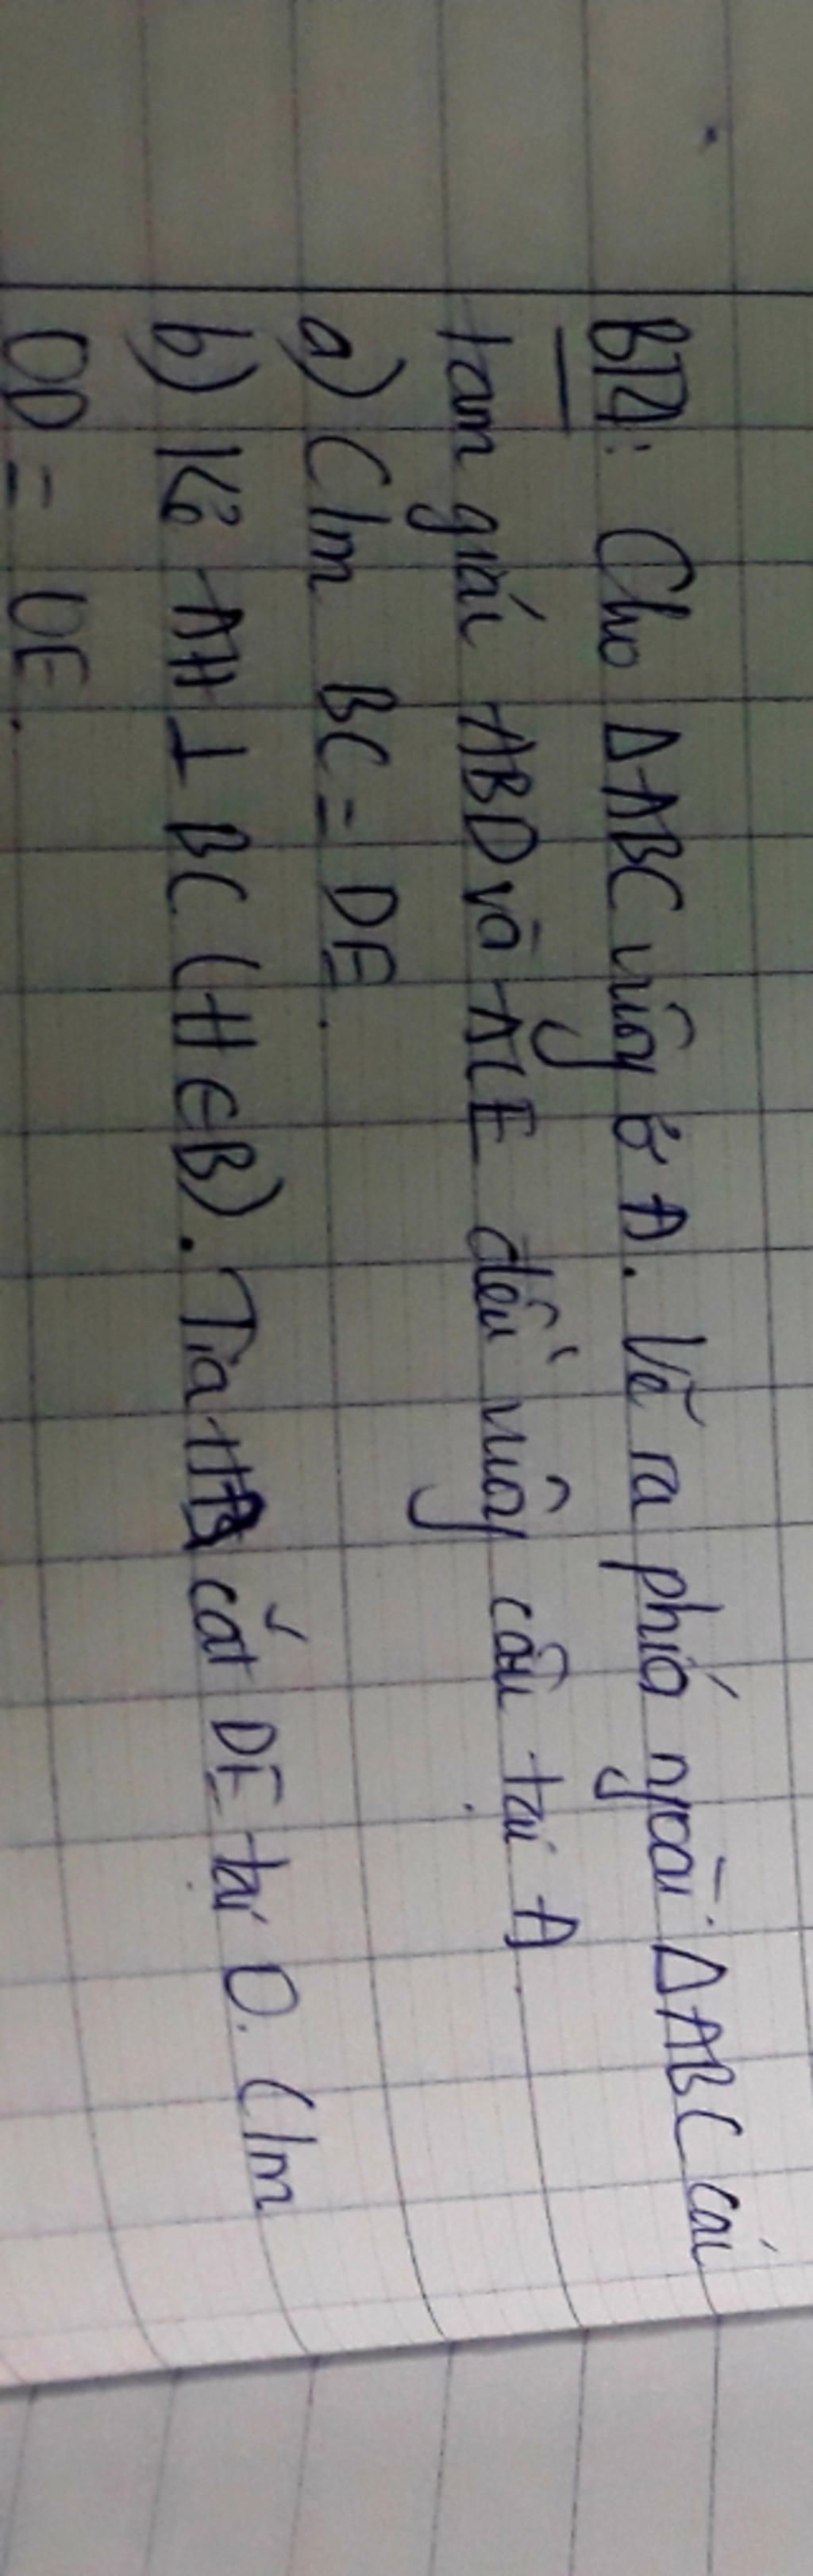 BT4: Cho ΔABC vuông ở A. Vẽ ra phiá ngoài ΔABC các
tam giác ABD và ACE đều vuông cân tại A
a) C/m BC = DE.
b) Kẻ AH ⊥ BC (H ∈ B). Tia HA cắt DE tại O. C/m
OD = OE.